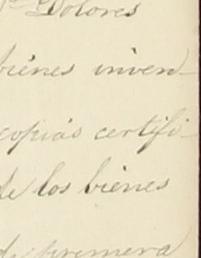 Dolores
bienes inven-
copias certifi-
de los bienes
de primera